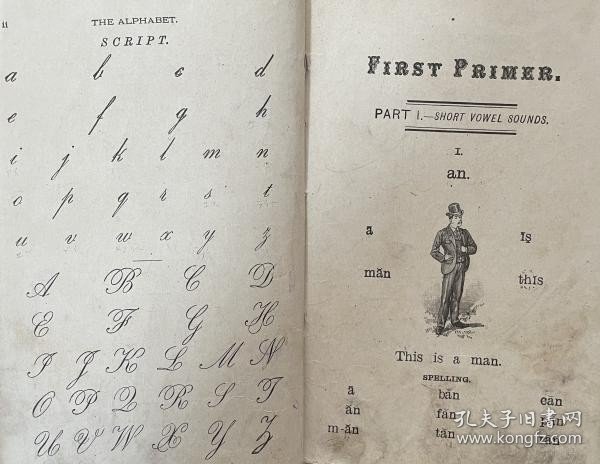 ii THE ALPHABET.
SCRIPT.
a b c d
e f g h
i j k l m n
o p q r s t
u v w x y z
A B C D
E F G H
I J K L M N
O P Q R S T
U V W X Y Z
FIRST PRIMER.
PART I.—SHORT VOWEL SOUNDS.
I.
an.
ă ĭş
măn thĭs
This is a man.
SPELLING.
ă băn căn
ăn făn
m-ăn tăn
孔夫子旧书网
www.kongfz.com